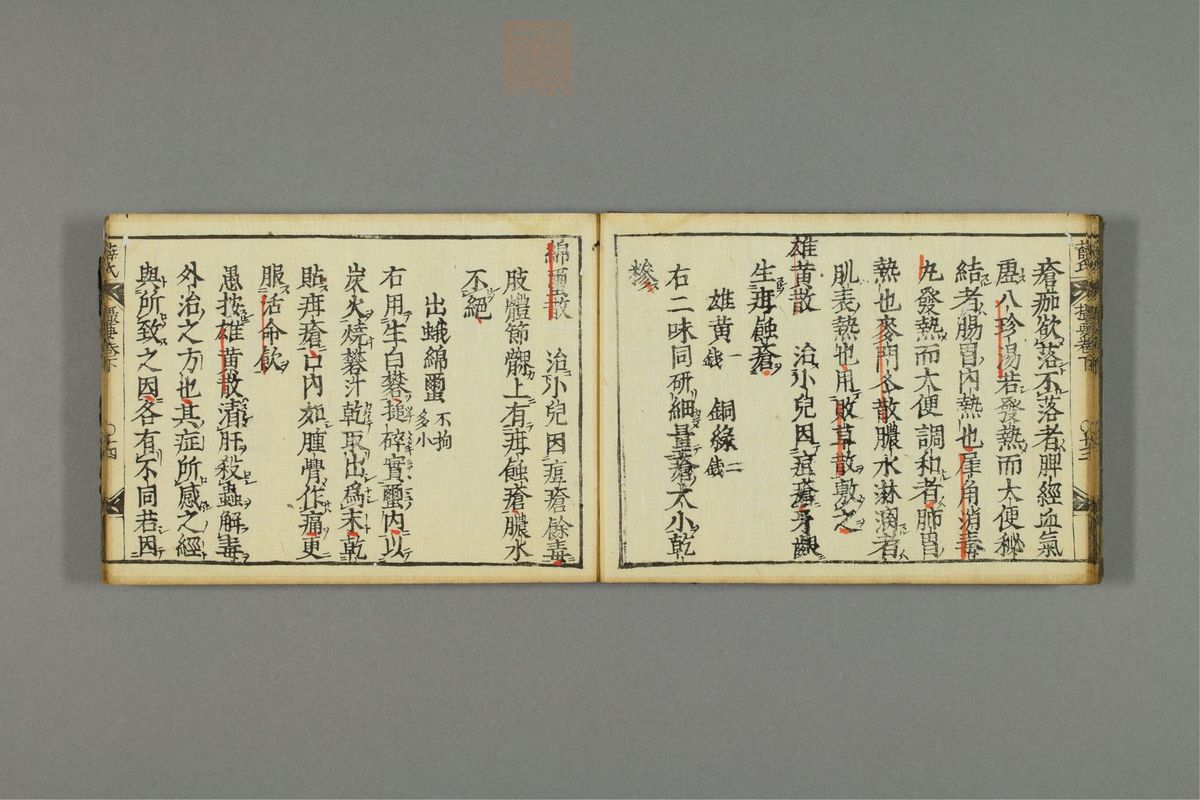 瘡痂欲落不落者脾經血氣
虚八珍湯若發熱而大便秘
結者腸胃内熱也犀角消毒
丸發熱而大便調和者肺胃
熱也麥門冬散膿水淋漓者
肌表熱也用敗草散敷之
雄黄散　治小兒因痘瘡身
生疳蝕瘡
雄黄一錢　銅緑二錢
右二味同研細量瘡大小乾
摻
綿璽散　治小兒因痘瘡餘毒
肢體節髎上有疳蝕瘡膿水
不絕
出蛾綿璽不拘多小
右用生白礬搥碎實璽内以
炭火燒礬汁乾取出為末乾
貼疳瘡口内如腫骨作痛更
服活命飲
愚按雄黄散清肝殺蟲解毒
外治之方也其症所感之經
與所致之因各有不同若因